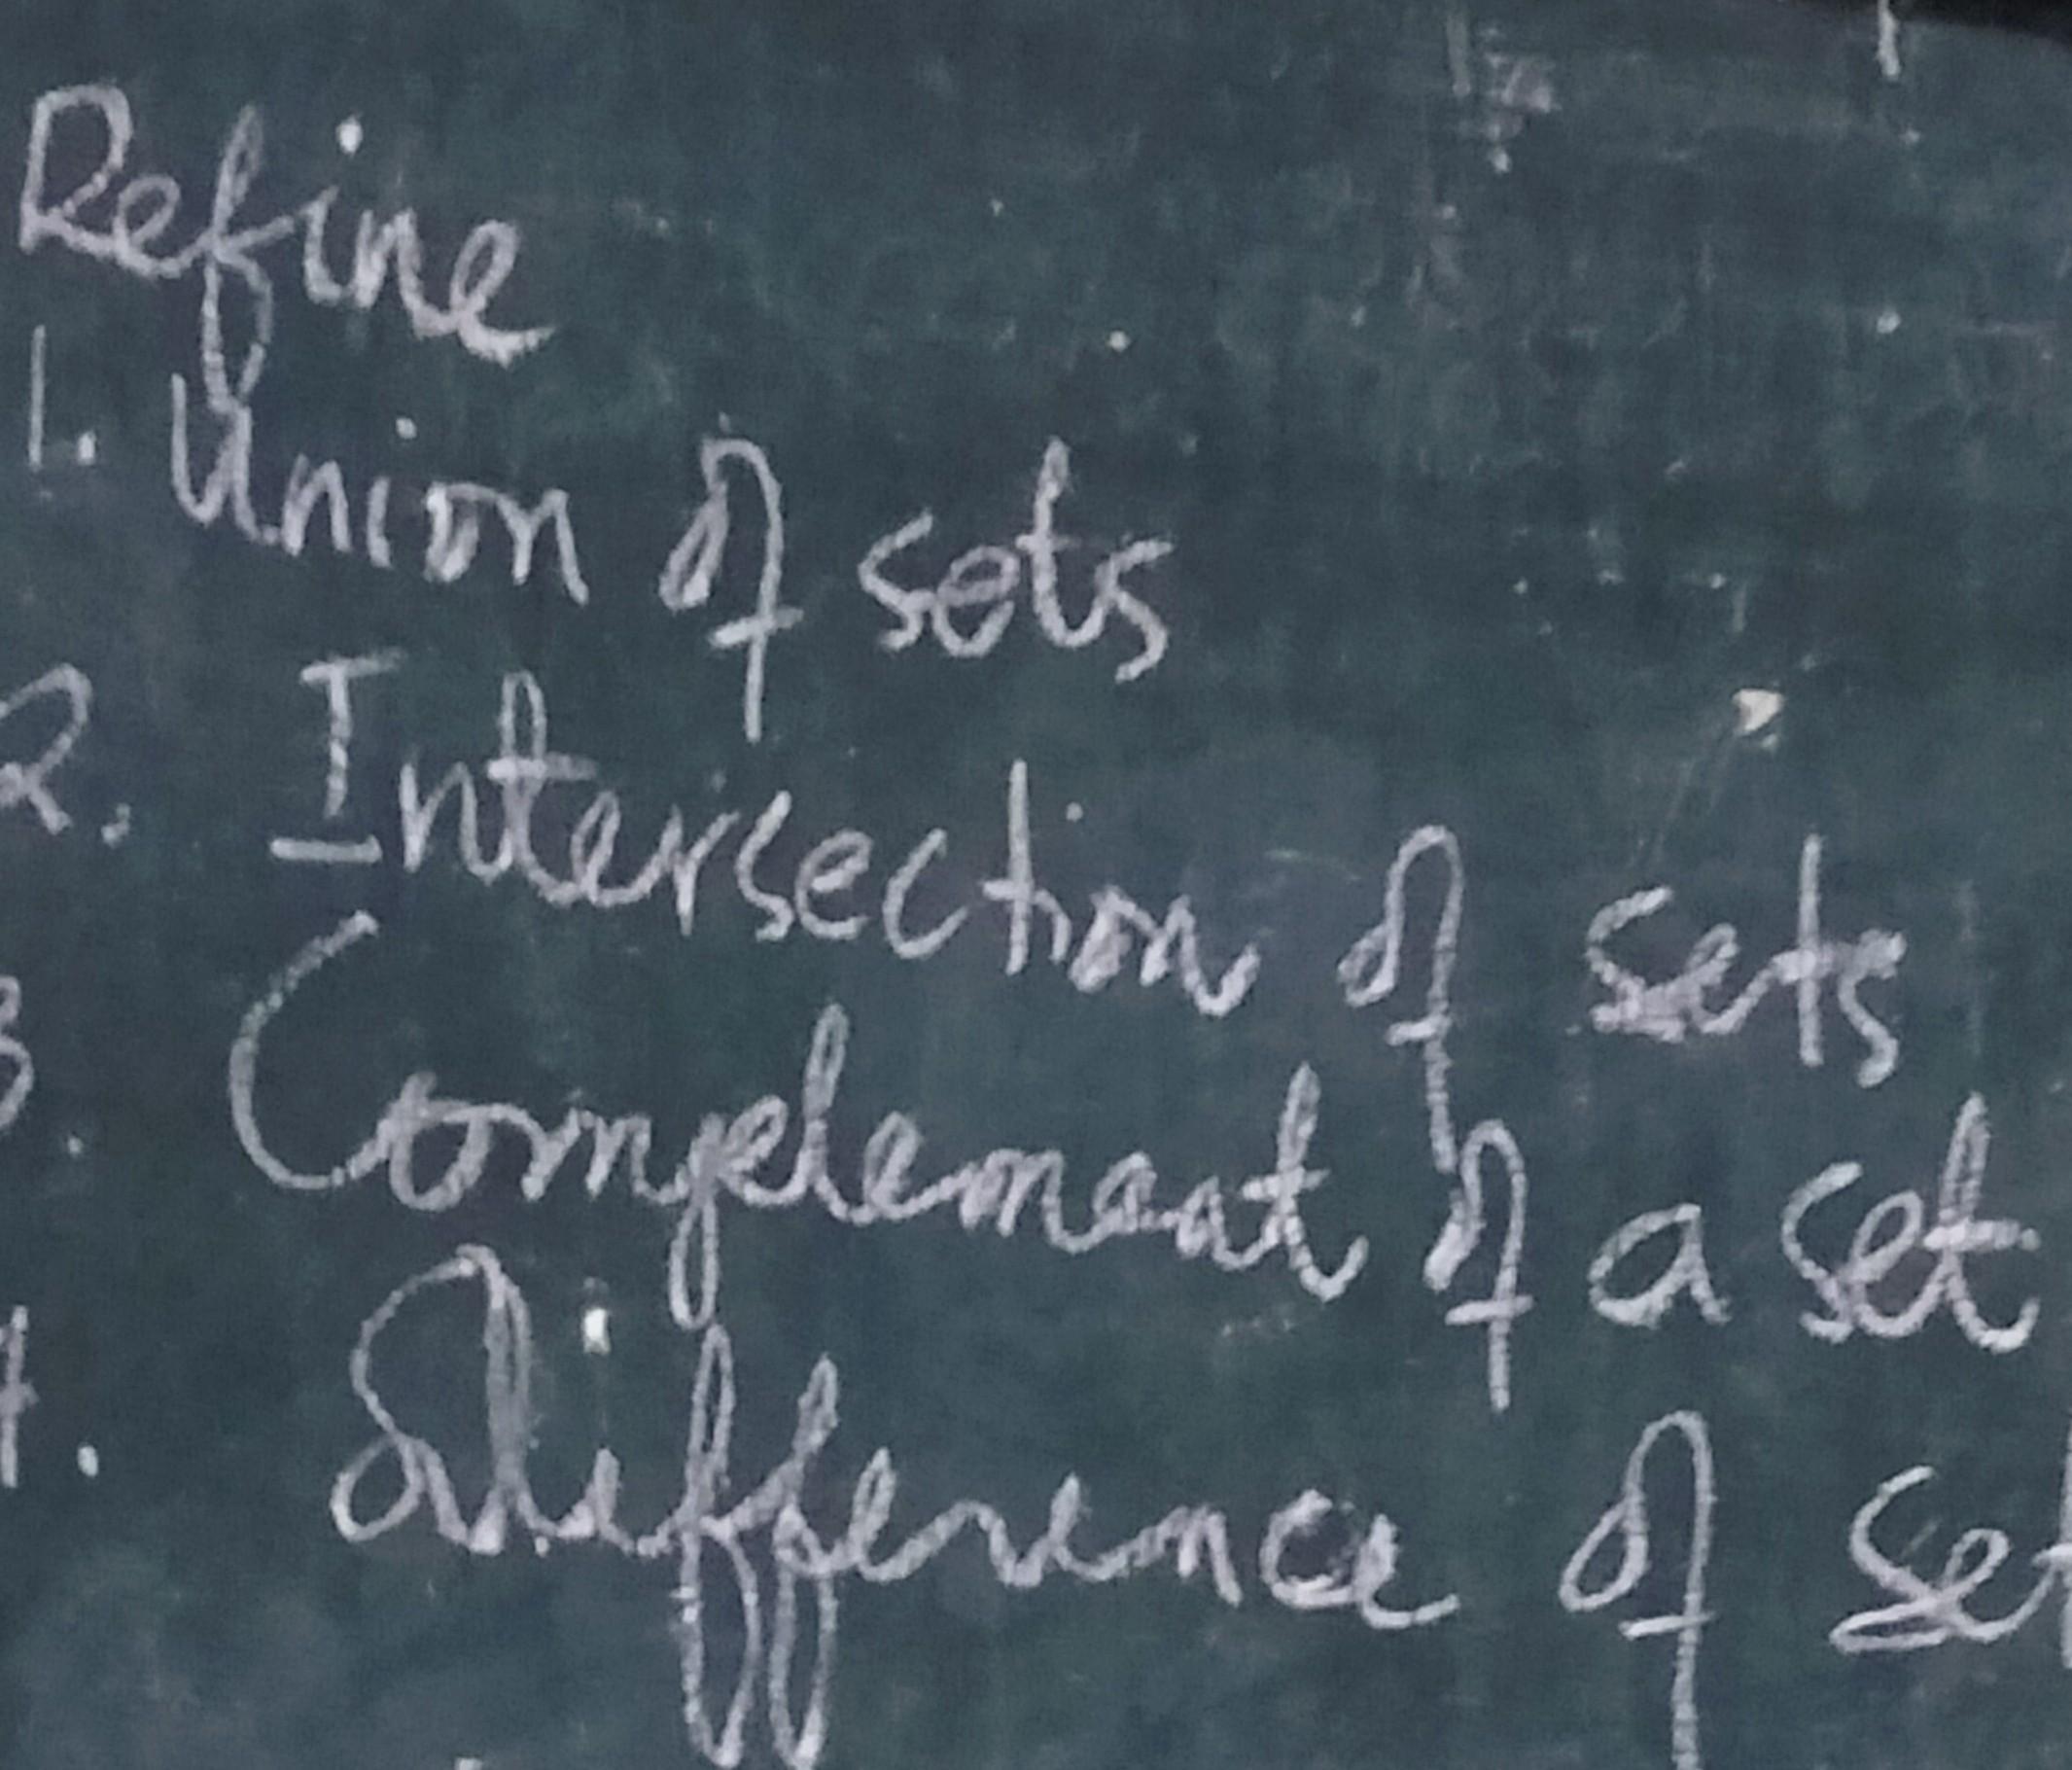 Refine
1. Union of sets
2. Intersection of sets
3. Complement of a set
4. Difference of set